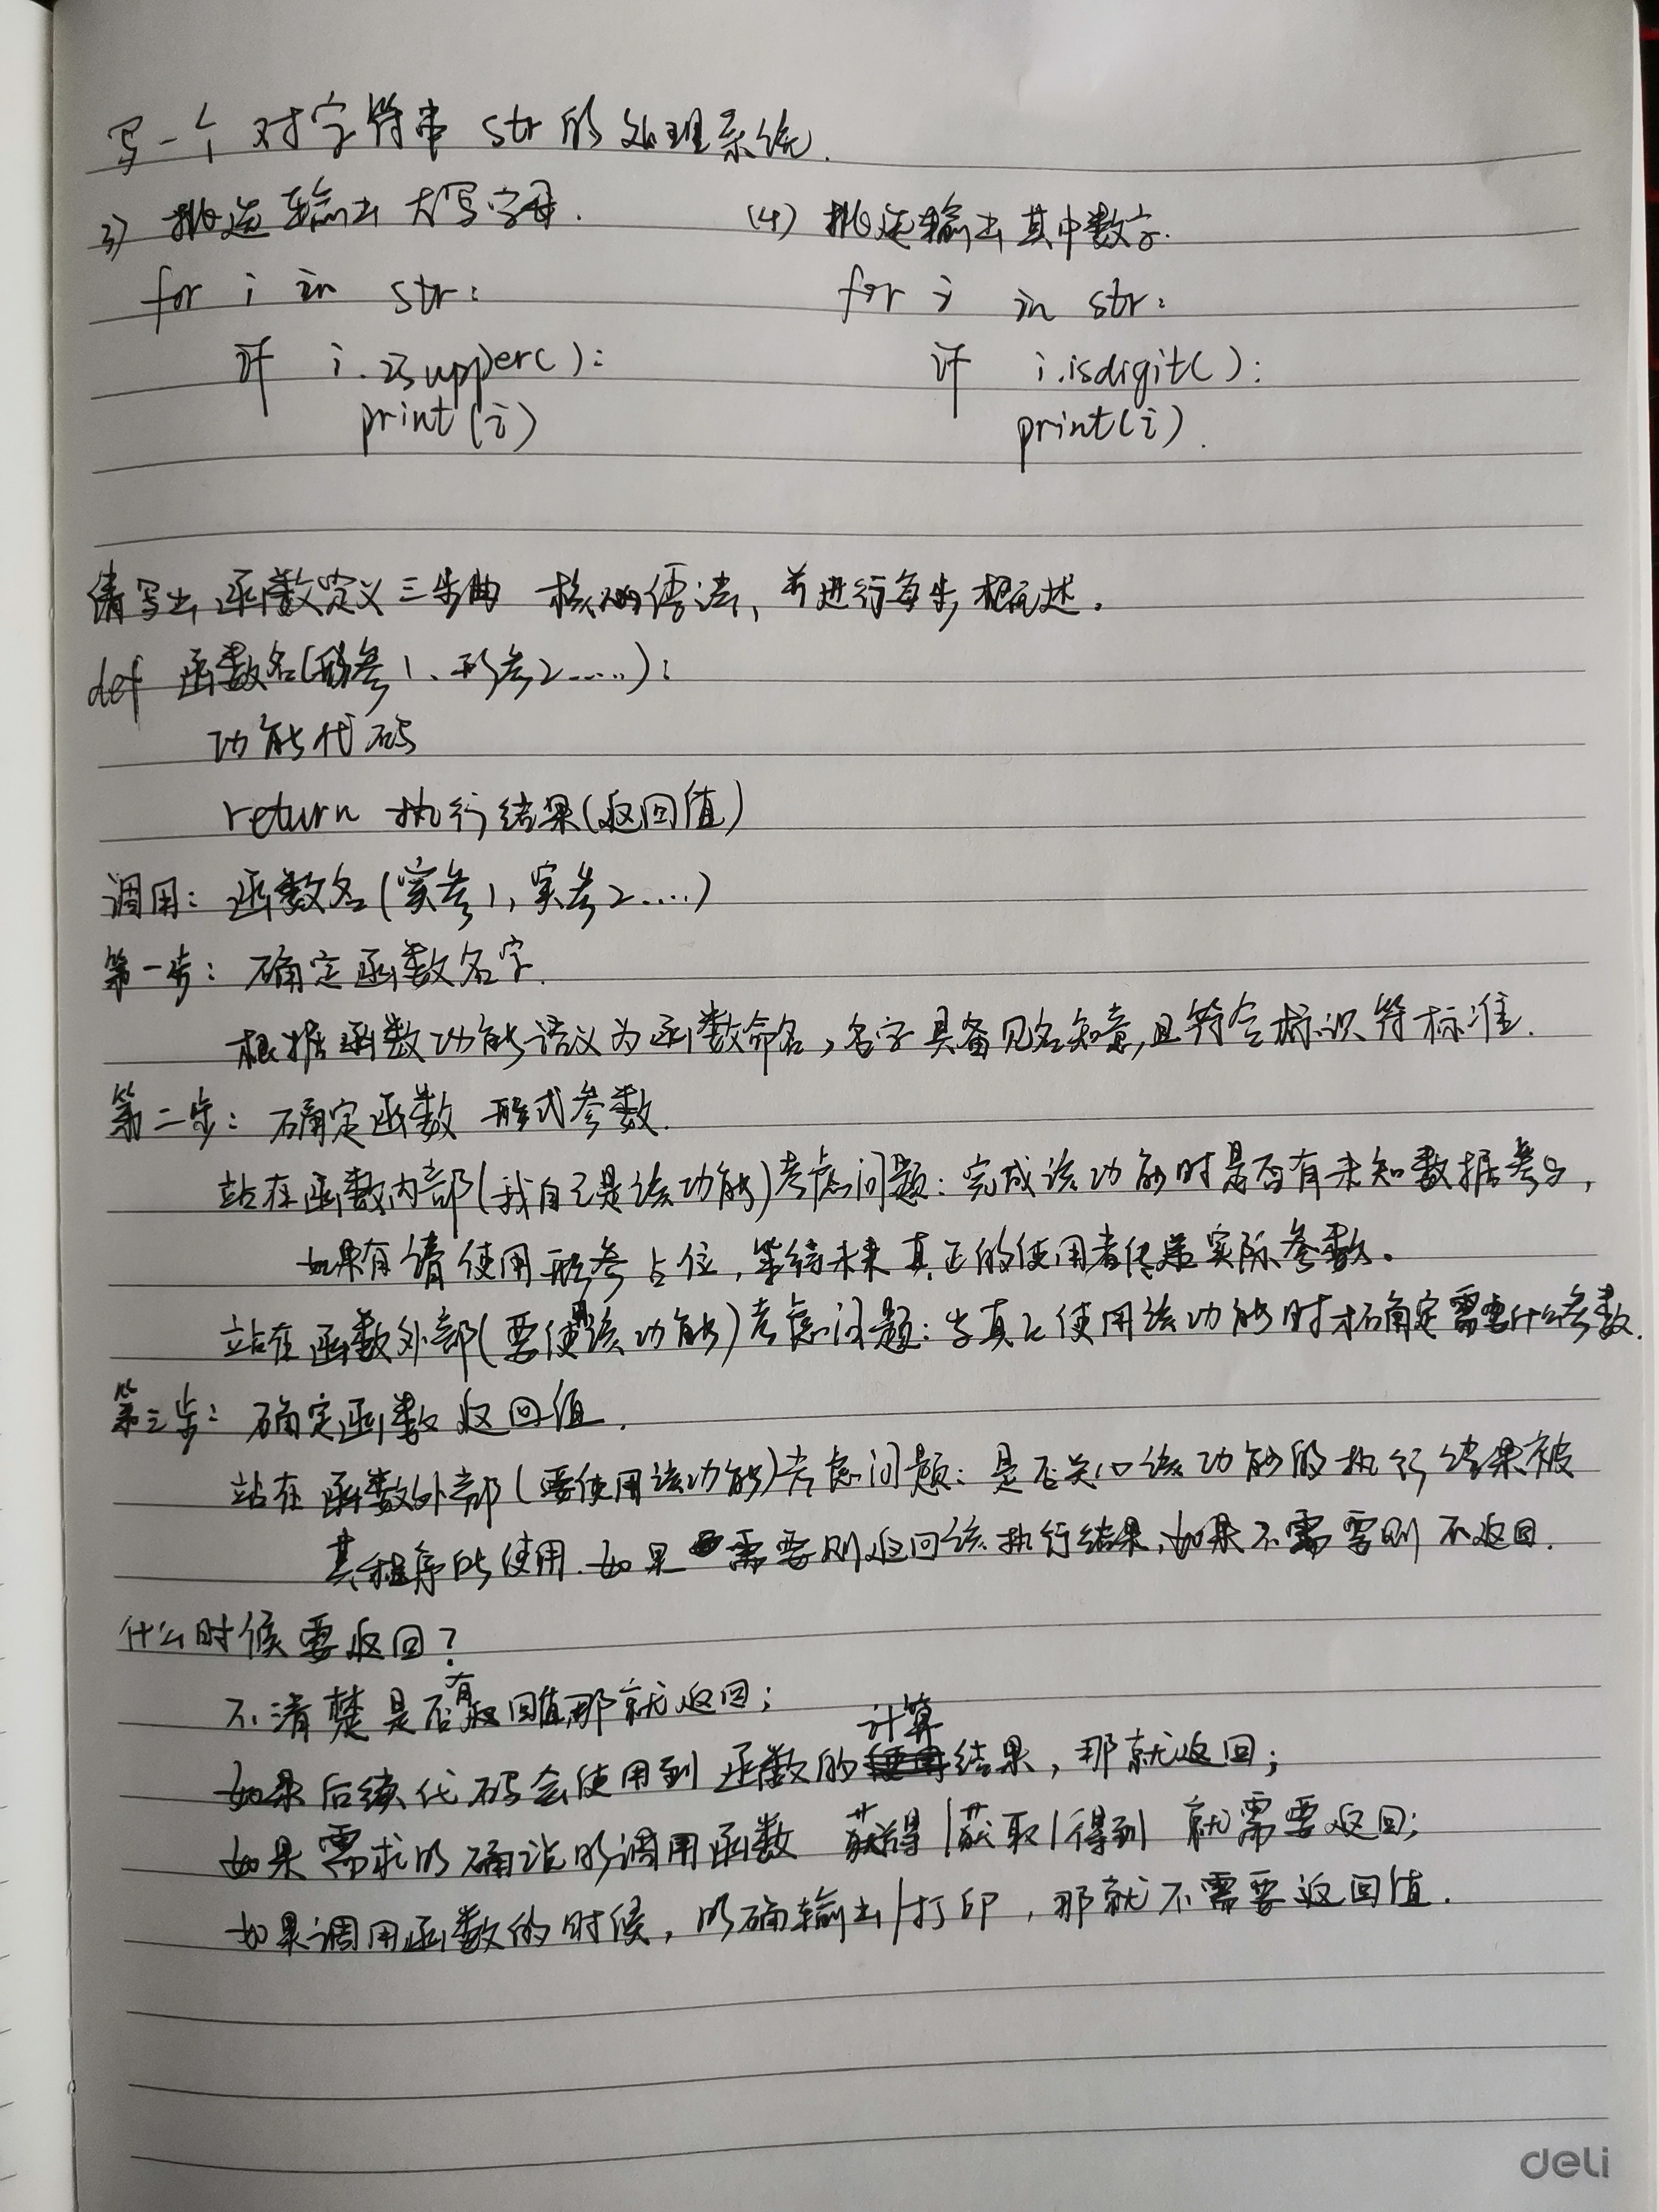 写一个对字符串 str 的处理系统.
3) 挑选输出大写字母. (4) 挑选输出其中数字.
for i in str: for i in str:
if i.isupper(): if i.isdigit():
print(i) print(i).
请写出函数定义三步曲 核心语法、并进行每步概述.
def 函数名(形参1、形参2.....):
功能代码
return 执行结果(返回值)
调用: 函数名(实参1, 实参2....)
第一步: 确定函数名字.
根据函数功能语义为函数命名, 名字具备见名知意,且符合标识符标准.
第二步: 确定函数 形式参数.
站在函数内部(我自己是该功能)考虑问题: 完成该功能时是否有未知数据参与,
如果有请使用形参占位, 等待未来真正的使用者传递实际参数.
站在函数外部(要使用该功能)考虑问题: 当真正使用该功能时才确定需要什么参数.
第三步: 确定函数返回值.
站在函数外部(要使用该功能)考虑问题: 是否关心该功能的执行结果被
其程序所使用. 如果需要则返回该执行结果, 如果不需要则不返回.
什么时候要返回?
不清楚是否有返回值,那就返回;
如果后续代码会使用到函数的计算结果, 那就返回;
如果需求明确说明调用函数 获得|获取|得到 就需要返回;
如果调用函数的时候, 明确输出/打印, 那就不需要返回值.
deli